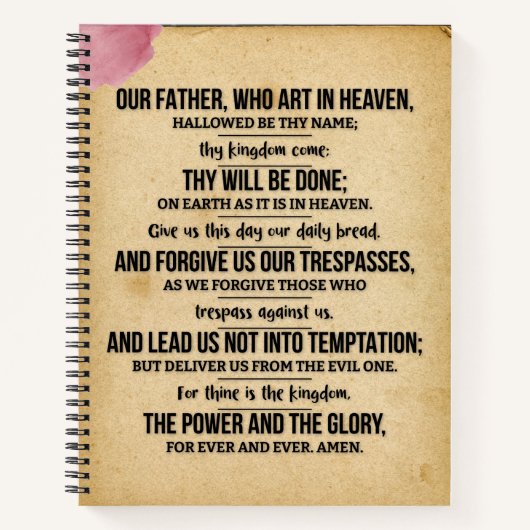 OUR FATHER, WHO ART IN HEAVEN,
HALLOWED BE THY NAME;
thy kingdom come;
THY WILL BE DONE;
ON EARTH AS IT IS IN HEAVEN.
Give us this day our daily bread.
AND FORGIVE US OUR TRESPASSES,
AS WE FORGIVE THOSE WHO
trespass against us.
AND LEAD US NOT INTO TEMPTATION;
BUT DELIVER US FROM THE EVIL ONE.
For thine is the kingdom,
THE POWER AND THE GLORY,
FOR EVER AND EVER. AMEN.